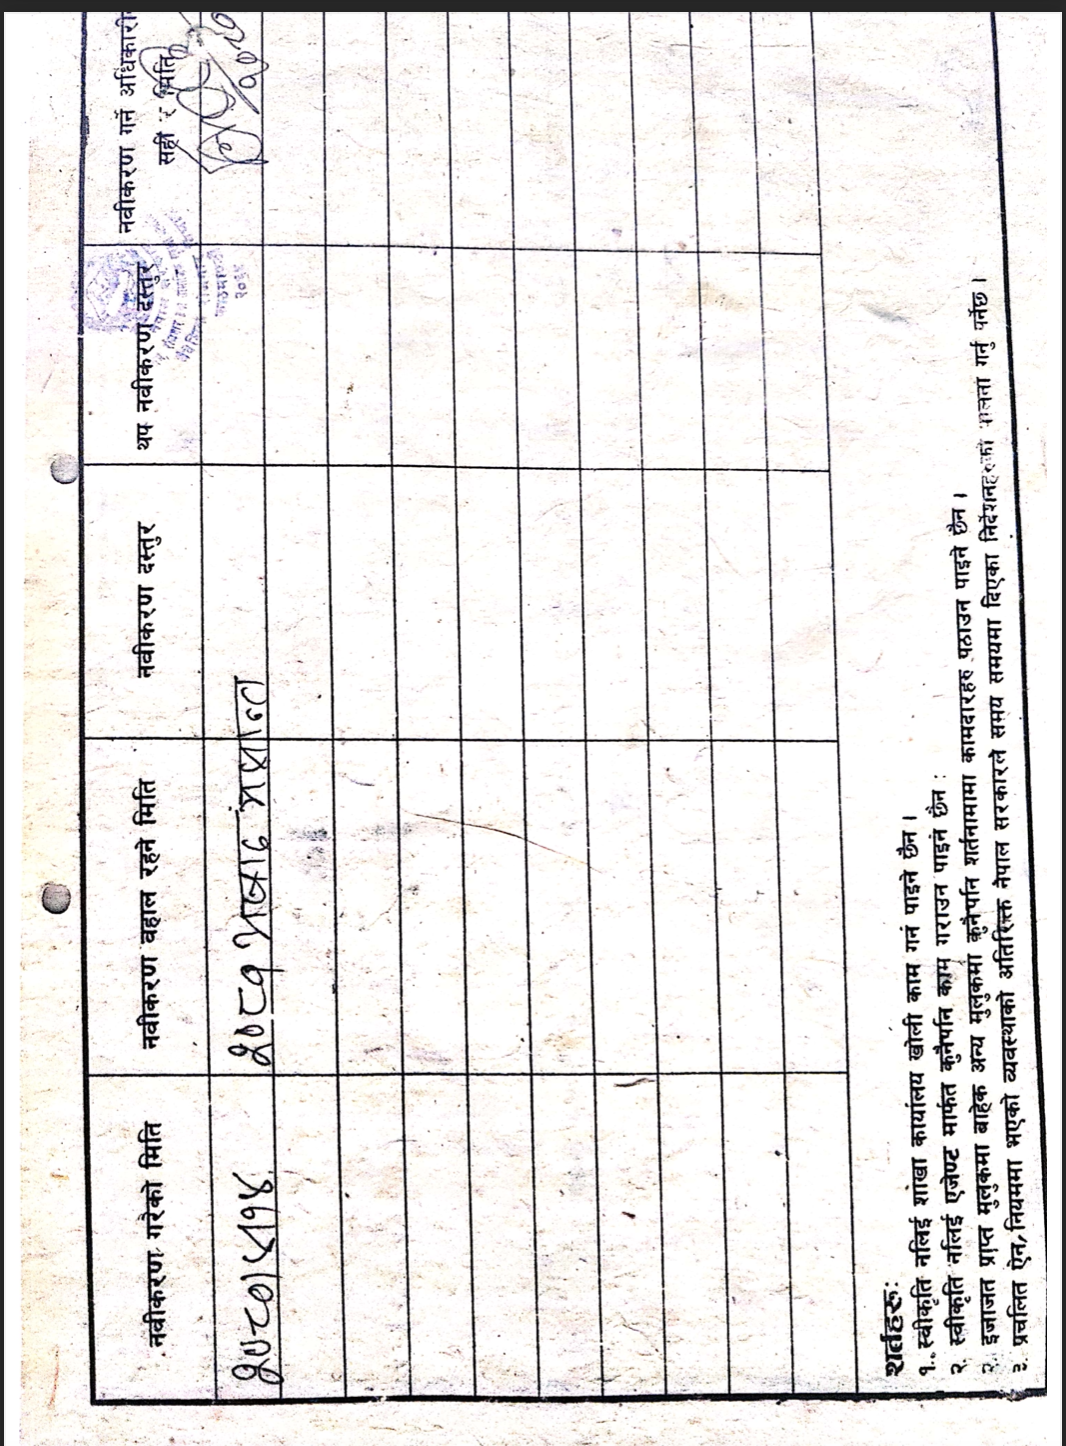 नवीकरण गरेको मिति
नवीकरण बहाल रहने मिति
नवीकरण दस्तुर
थप नवीकरण दस्तुर
नवीकरण गर्ने अधिकारी
सही र मिति
२०८०।५।१४
२०८१ अषाढ मसान्त
शर्तहरू:
१. स्वीकृति नलिई शाखा कार्यालय खोली काम गर्न पाइने छैन।
२. स्वीकृति नलिई एजेण्ट मार्फत कुनैपनि काम गराउन पाइने छैन:
३. इजाजत प्राप्त मुलुकमा बाहेक अन्य मुलुकमा कुनैपनि शर्तनामामा कामदारहरु पठाउन पाइने छैन।
प्रचलित ऐन, नियममा भएको व्यवस्थाको अतिरिक्त नेपाल सरकारले समय समयमा दिएका निर्देशनहरुको पालना गर्नु पर्नेछ।